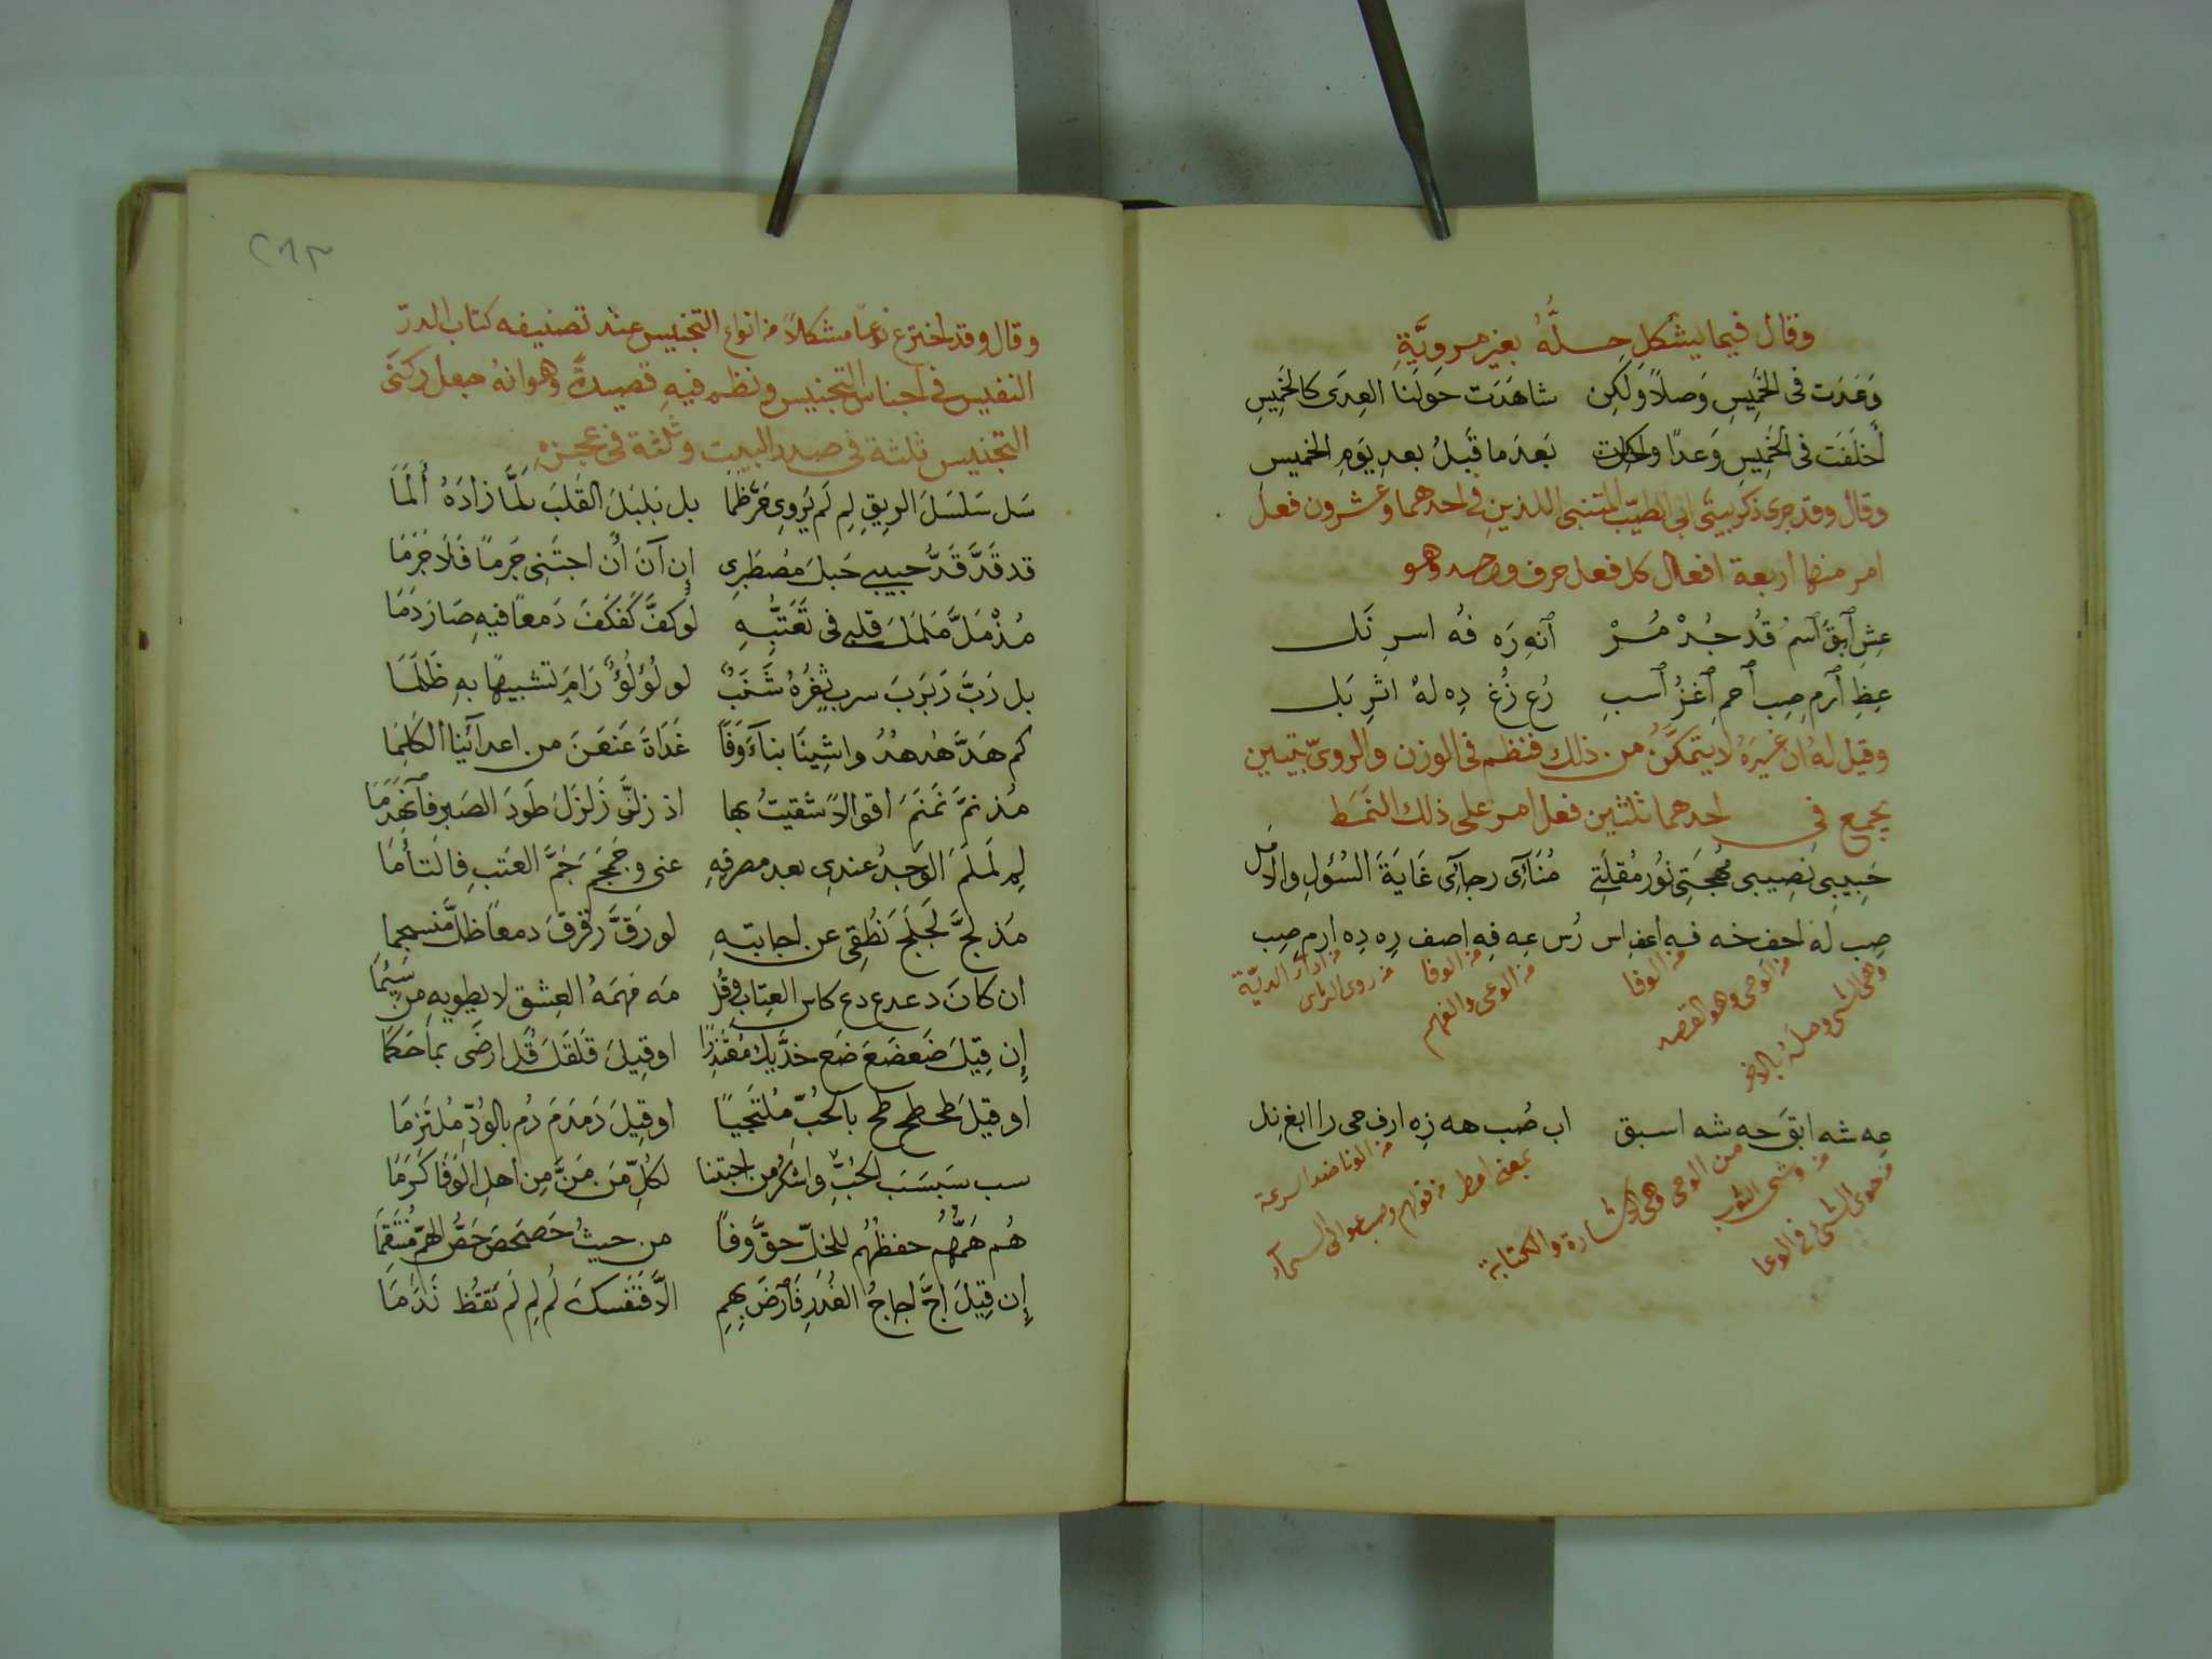 وقال فيما يشكل حلُّهُ بغير مرويَّةِ
وَعَدَت فى الخَمِيسِ وَصلاً وَلكِن شاهَدَت حولَنا العِدَى كالخَمِيسِ
أَخلَفَت فى الخَمِيسِ وَعدًا وجاءت بَعدَ ما قَبلُ بعدِ يَومِ الخميسِ
وقال وقد جرى ذكر بيتَى ابى الطيّب المتنبى اللذينِ فى احدهما وعشرون فعل
امر منها اربعة افعال كل فعل حرف واحد وهو
عِشِ اَبقَ اَسمُ قُد جُدْ مُرْ اَنهِ رَه فُه اسرِ نَل
عِظِ اَرمِ صِبِ اَحمِ اَغزُ اَسبِ رُع زُغ دِه لهُ اثرِ بَل
وقيل لهُ ان غيرَهُ لا يتمكّنُ من ذلك فنظم فى الوزن والروىّ بيتين
يجمع فى احدهما ثلثين فعل امر على ذلك النَمَط
حَبِيبى نصِيبى مُهجَتِى نُورُ مُقلَتِى مُنَآئى رجآئى غَايَةَ السُؤلِ والأمَلِ
صِب لَهُ احفِ خه فه اعفِ اس رُس عِه فِه اصف رِه دِه ارمِ صِب
من الوحى وهو القصد
من الوفا
من الوعى والفهم
من الوفا
من روى الرأى
من ادآء الديّة
عِه شه ابقَ حه شه اسبق اب صُب هه زِه ارف حى را ابغ نِل
من حوى الشئ فى الوعا
من وشى الثوب
من الوحى وهى الاشارة والكتابة
من الونا ضد السرعة
٢٨٣
وقال وقد اخترع نوعًا مشكلاً من انواع التجنيس عند تصنيفه كتاب الدرّ
النفيس فى اجناس التجنيس ونظم فيهِ قصيدةً وهو انهُ جعل ركنَى
التجنيس ثلثة فى صدر البيت وثلثة فى عجزهِ
سَل سَلسَلَ الريقِ لِم لَم يُروِى حَرَّ ظَمَا بل بَلبَلَ القَلبَ لمَّا زادَهُ أَلَمَا
قد قَدَّ قَدُّ حبيبى حَبلَ مُصطَبِرِى إن آنَ أَن اجتَنِى جَرمًا فَلَا جَرَمَا
مُذْ مَلَّ مَلمَلَ قلبى فى تَعَتُّبِهِ لو كفَّ كَفكَفَ دَمعًا فيهِ صَارَ دَمَا
بل رَبَّ رَبرَبَ سرب ثَغرُهُ شَنَبٌ لو لُؤلُؤٌ رَامَ تشبيهًا بهِ ظَلَمَا
كم هَدَّ هُدهُدُ واشِينَا بناءَ وَفًا غَدَاةَ عَنعَنَ من اعدآئِنا الكَلِمَا
مُذ نمَّ نَمنَمَ اقوالاً شقيتُ بها اذ زلَّ زَلزَلَ طَودَ الصَبرِ فاَنهَدَمَا
لِم لَملَمَ الوَجدُ عندى بعد مصرفِهِ عنى وجَمجَمَ جَمَّ العَتبِ فالتأمَا
مُذ لجَّ لَجلَجَ نُطقِى عن اجابتهِ لو رَقَّ رَقرَقَ دمعًا ظلَّ منسجما
ان كانَ دعدع دع كاسَ العِتَابِ وقُل مَه مَهمَهُ العِشق لا يطويهِ من سَئِمَا
إن قِيلَ ضَعضَعَ ضَع خدَّيكَ مُعتَذِرًا او قِيلَ قَلقَلَ قُل ارضَى بما حَكَمَا
او قيلَ طحطح طح بالحُبِّ مُلتَجِيًا او قِيلَ دَمدَمَ دُم بالوُدِّ مُلتَزِمَا
سب سَبسَبَ الحُبِّ واشكُر من اجتنا لكُلِّ مَن مَنَّ مِن أهلِ الوَفَا كَرَمَا
هُم هَمُّهُم حفظُهُم للخِلِّ حقَّ وَفًا من حيثُ حَصحَصَ حَصُّ الهَمِّ مُنتَقِمَا
إن قِيلَ لَجَّ لجاجُ الغُدَرِ فَارضَ بهِمِ الَّا فَنَفسَكَ لُم لِم لَم تَفُظ نَدَمَا